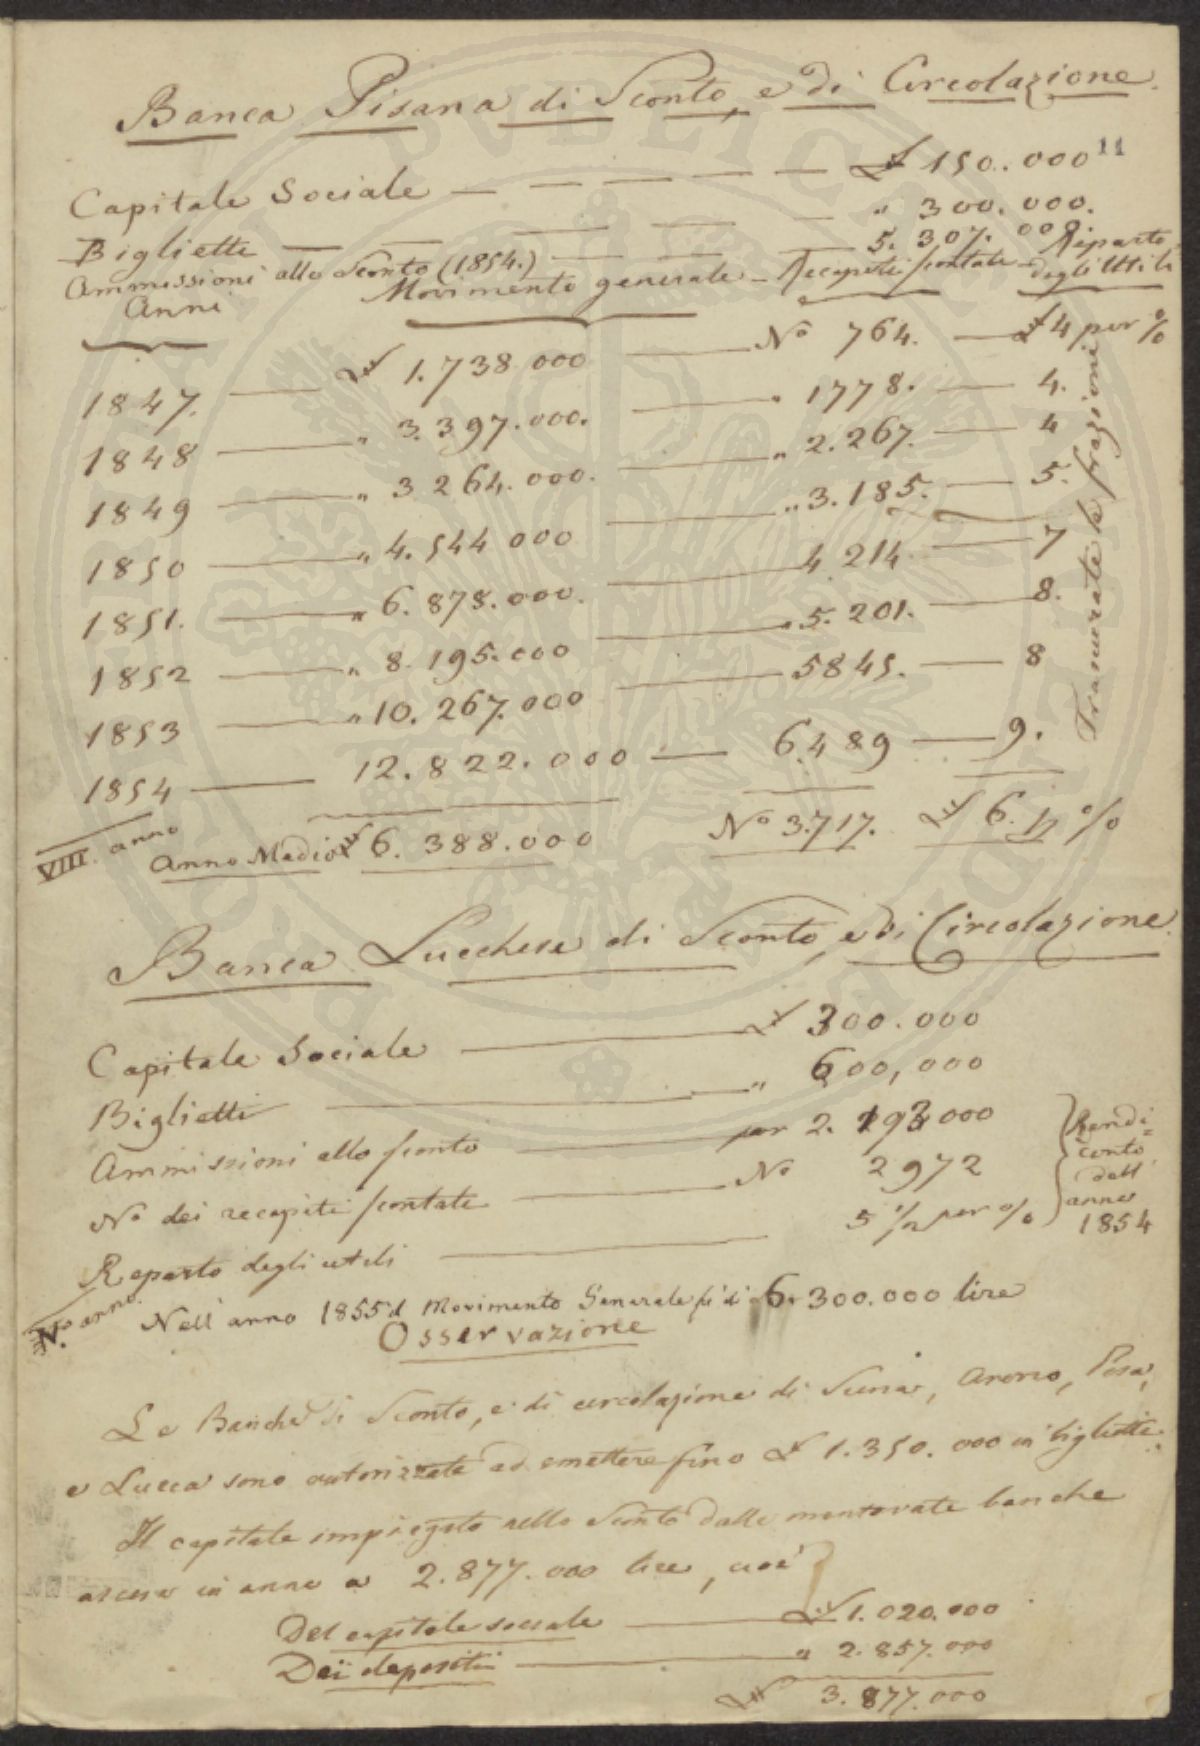 Banca Pisana di Sconto, e di Circolazione.
11
Capitale Sociale £ 150.000
Biglietti " 300.000.
Ammissioni allo Sconto (1854.) 5.307.000.
Anni Movimento generale Recapiti scontati Reparto degli Utili
1847. £ 1.738.000 No 764. £ 4 per %
1848 " 3.397.000. " 1778. 4.
1849 " 3.264.000. " 2.267. 4
1850 " 4.544.000 " 3.185. 5.
1851. " 6.878.000. 4.214 7
1852 " 8.195.000 " 5.201. 8.
1853 " 10.267.000 5845. 8
1854 12.822.000 6.489 9.
Trascurate le frazioni
VIII. anno
Anno Medio £ 6.388.000 No 3.717. £ 6. %
Banca Lucchese di Sconto, e di Circolazione.
Capitale Sociale £ 300.000
Biglietti " 600,000
Ammissioni allo sconto per 2. 000
No dei recapiti scontati No 2972
Reparto degli utili 5 ½ per %
Rendi=
conto
dell'
anno
1854
anno.
Nell'anno 1855 il Movimento Generale fù di 6.300.000 lire
Osservazione
Le Banche di Sconto, e di circolazione di Siena, Arezzo, Pisa,
e Lucca sono autorizzate ad emettere fino £ 1.350.000 in biglietti.
Il capitale impiegato nello Sconto dalle mentovate banche
ascese in anno a 2.877.000 lire, cioè
Del capitale sociale £ 1.020.000
Dei depositi " 2.857.000
£ 3.877.000